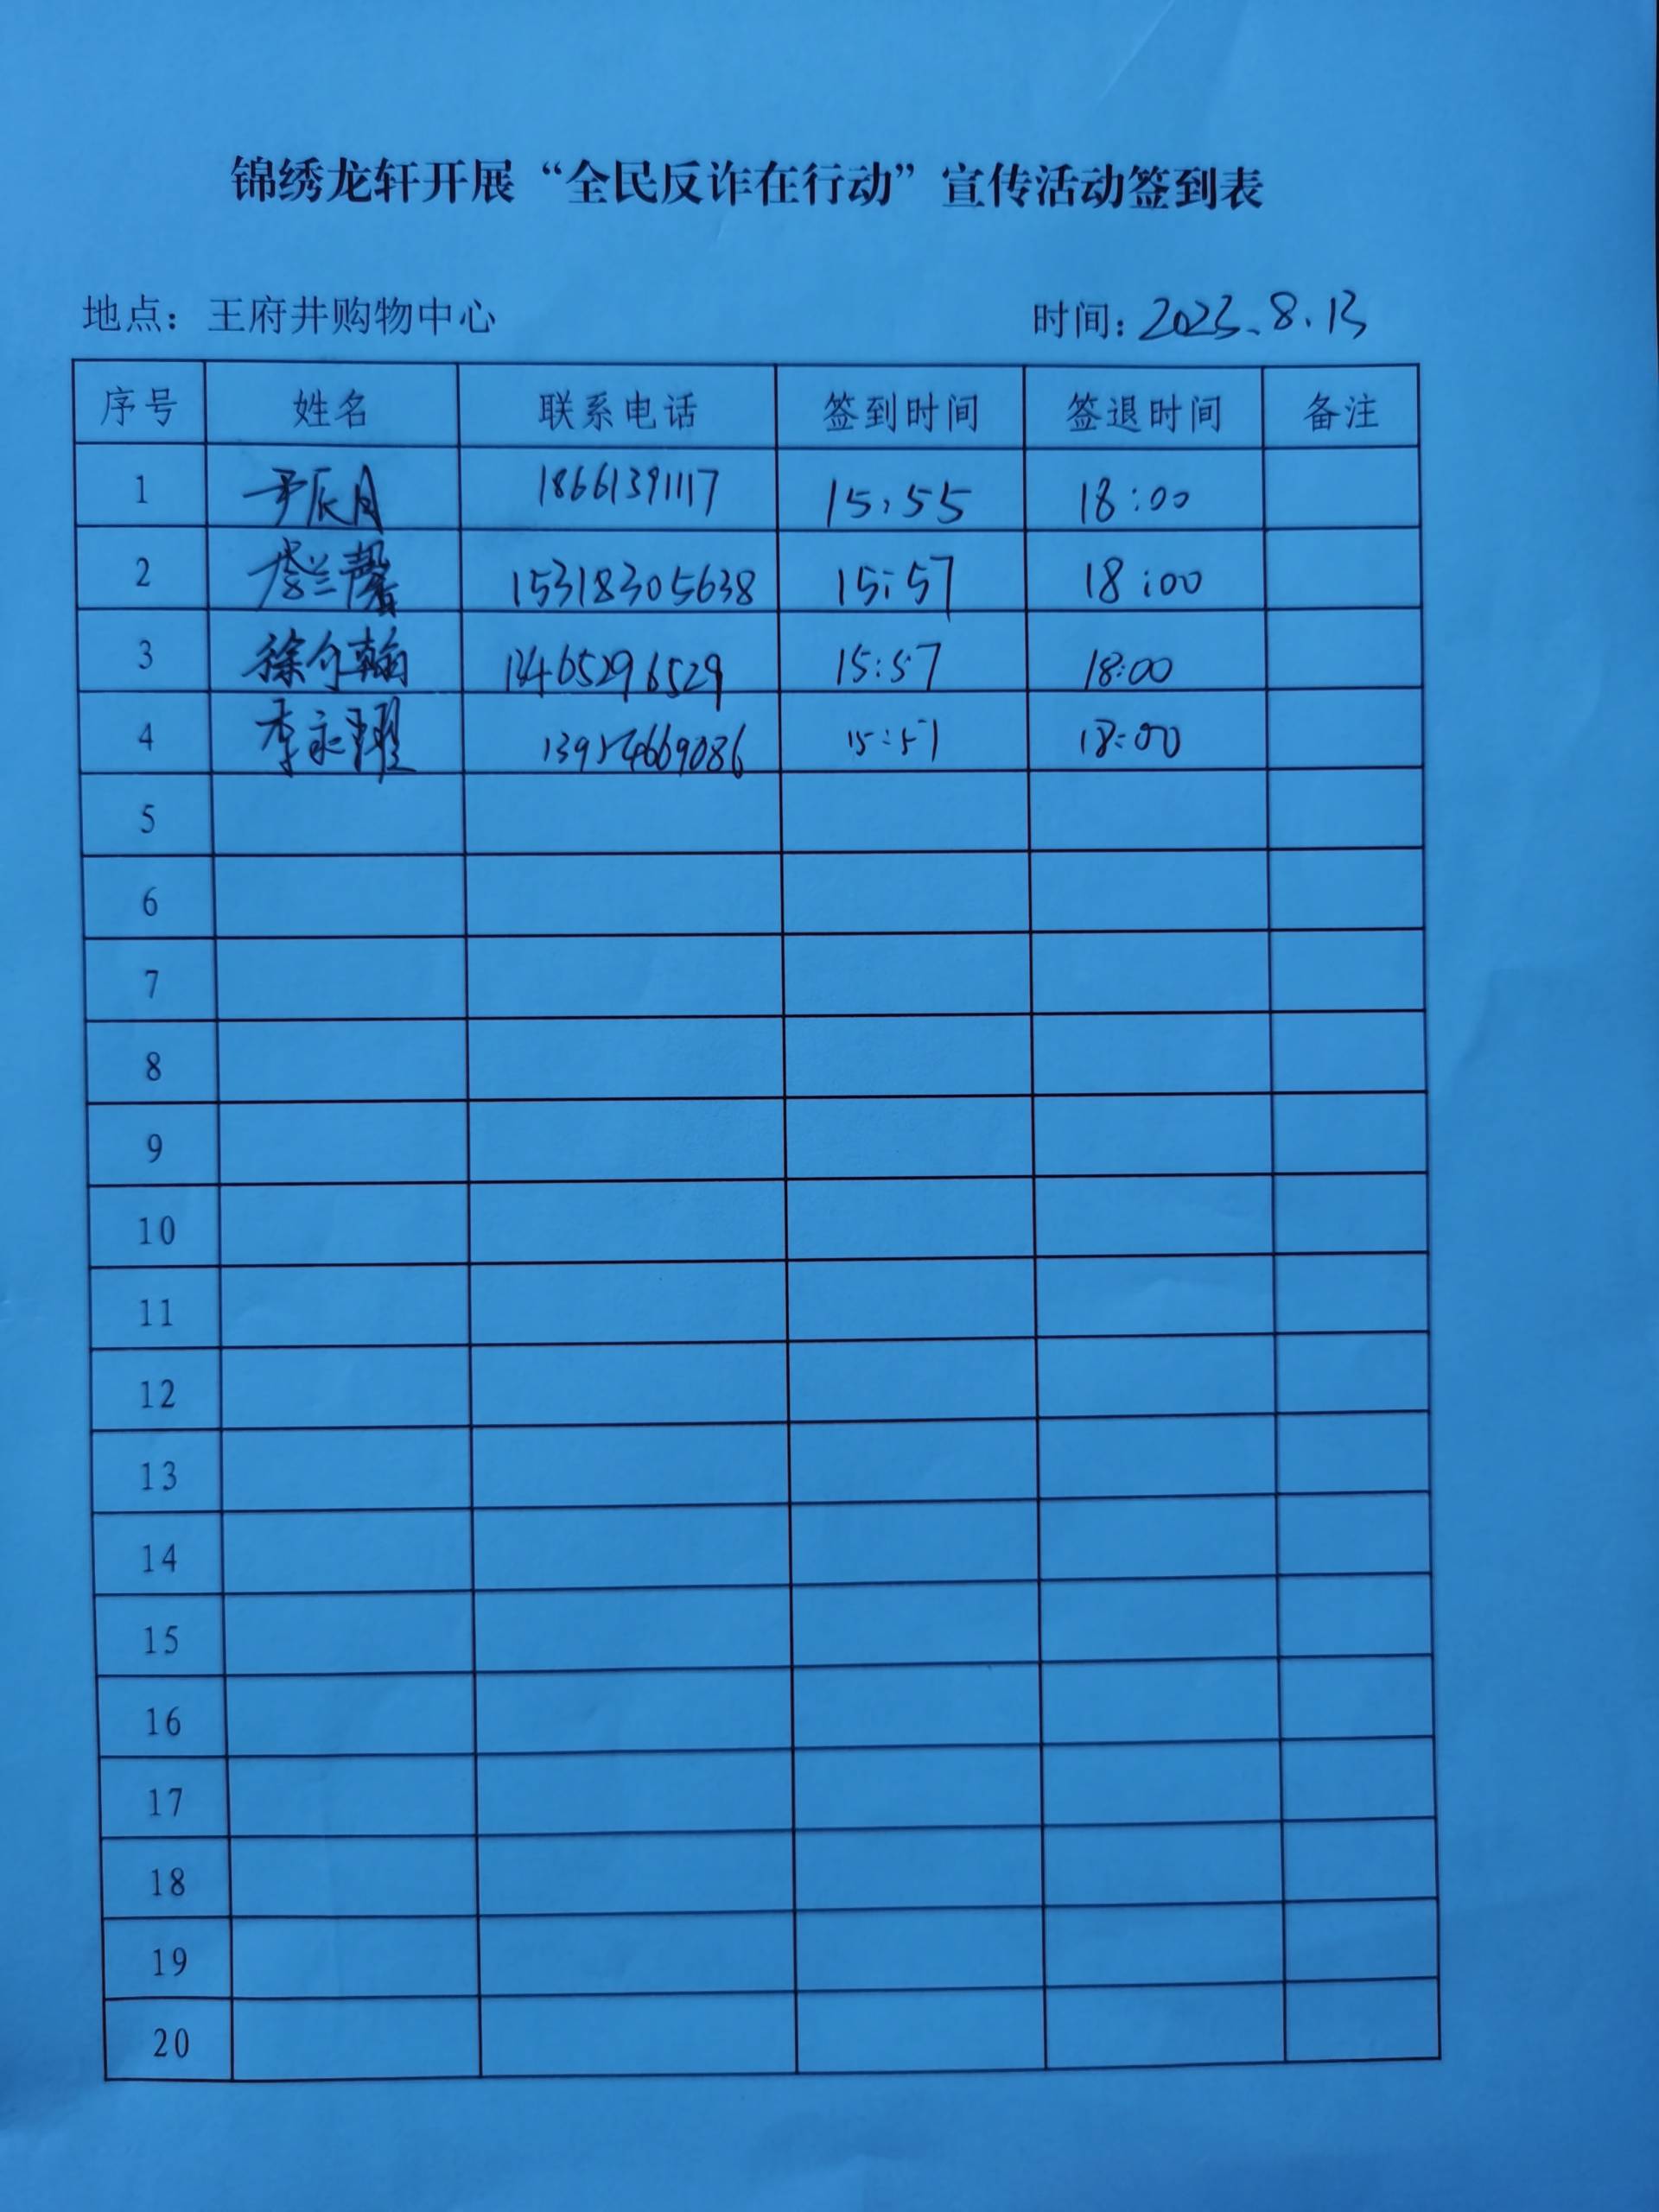 锦绣龙轩开展“全民反诈在行动”宣传活动签到表
地点：王府井购物中心 时间：2023.8.13
序号 姓名 联系电话 签到时间 签退时间 备注
1 尹辰月 18661391117 15:55 18:00
2 兰馨 15318305638 15:57 18:00
3 徐 翰 15:57 18:00
4 李 耀 15:57 18:00
5
6
7
8
9
10
11
12
13
14
15
16
17
18
19
20